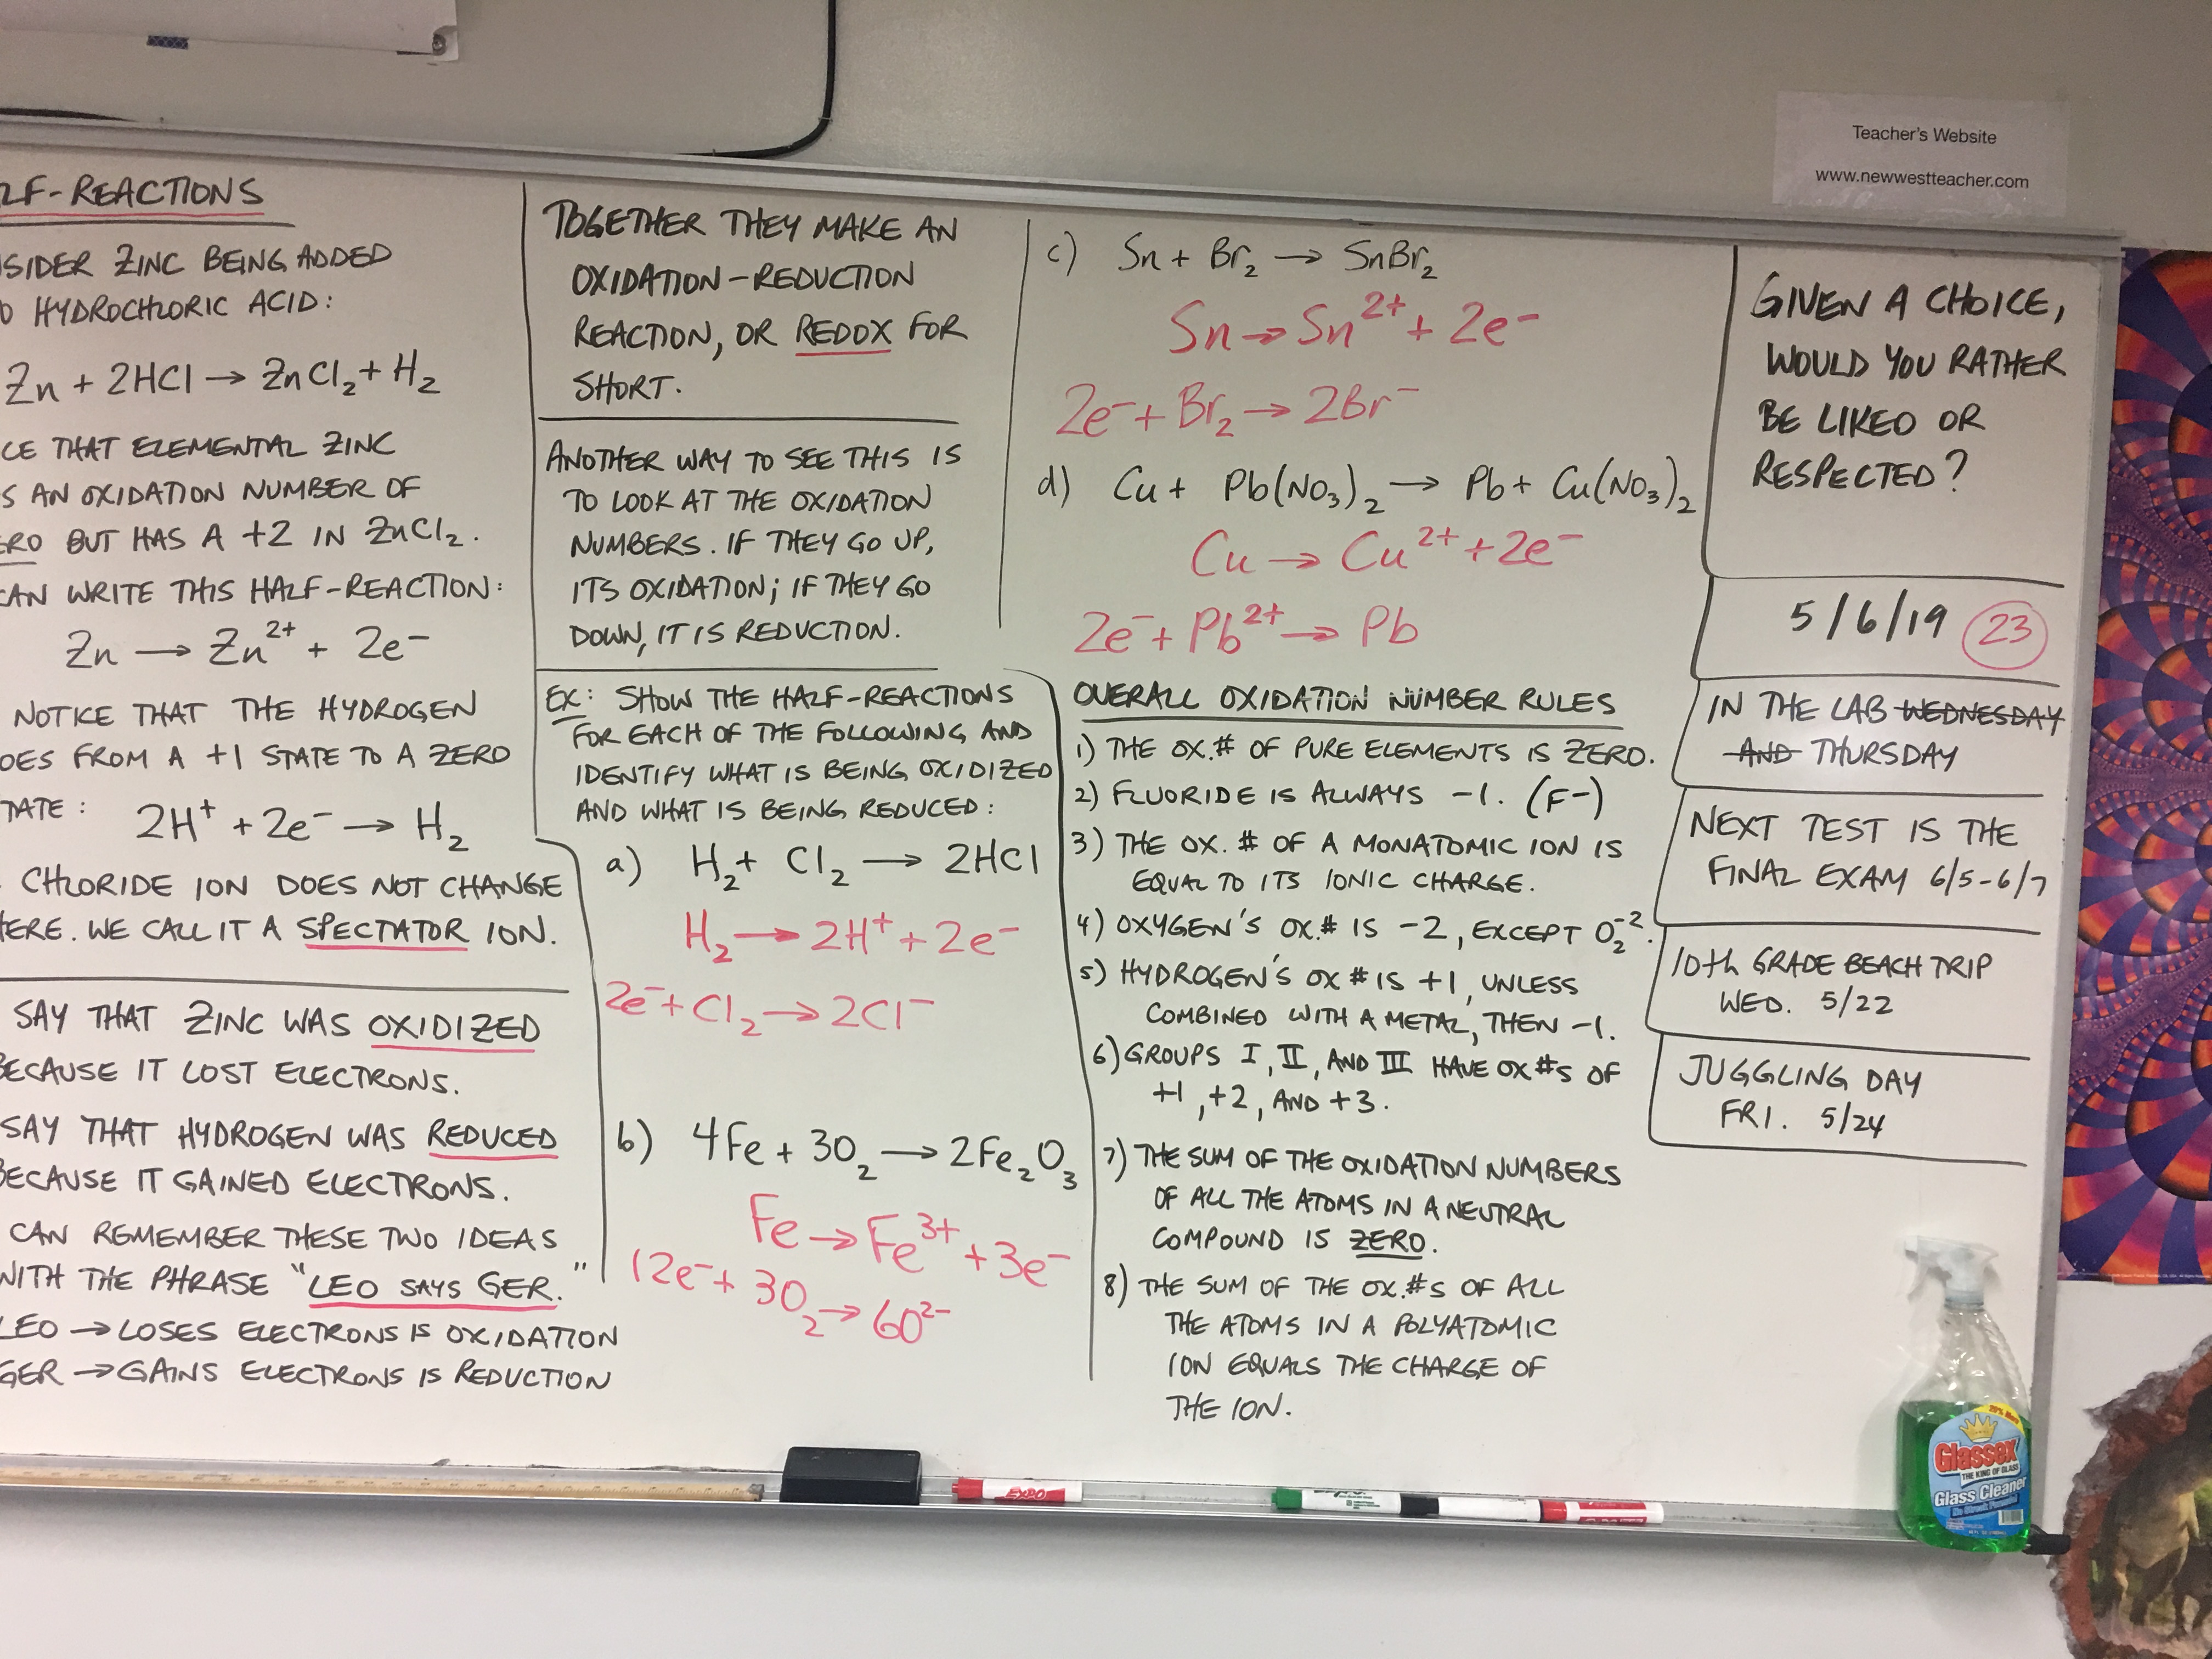 LF-REACTIONS
SIDER ZINC BEING ADDED
O HYDROCHLORIC ACID:
Zn + 2HCl → ZnCl₂ + H₂
CE THAT ELEMENTAL ZINC
S AN OXIDATION NUMBER OF
ERO BUT HAS A +2 IN ZnCl₂.
CAN WRITE THIS HALF-REACTION:
Zn → Zn²⁺ + 2e⁻
NOTICE THAT THE HYDROGEN
OES FROM A +1 STATE TO A ZERO
TATE: 2H⁺ + 2e⁻ → H₂
CHLORIDE ION DOES NOT CHANGE
HERE. WE CALL IT A SPECTATOR ION.
SAY THAT ZINC WAS OXIDIZED
BECAUSE IT LOST ELECTRONS.
SAY THAT HYDROGEN WAS REDUCED
BECAUSE IT GAINED ELECTRONS.
CAN REMEMBER THESE TWO IDEAS
WITH THE PHRASE "LEO SAYS GER."
LEO → LOSES ELECTRONS IS OXIDATION
GER → GAINS ELECTRONS IS REDUCTION
TOGETHER THEY MAKE AN
OXIDATION-REDUCTION
REACTION, OR REDOX FOR
SHORT.
ANOTHER WAY TO SEE THIS IS
TO LOOK AT THE OXIDATION
NUMBERS. IF THEY GO UP,
ITS OXIDATION; IF THEY GO
DOWN, IT IS REDUCTION.
EX: SHOW THE HALF-REACTIONS
FOR EACH OF THE FOLLOWING AND
IDENTIFY WHAT IS BEING OXIDIZED
AND WHAT IS BEING REDUCED:
a) H₂ + Cl₂ → 2HCl
H₂ → 2H⁺ + 2e⁻
2e⁻ + Cl₂ → 2Cl⁻
b) 4Fe + 3O₂ → 2Fe₂O₃
Fe → Fe³⁺ + 3e⁻
12e⁻ + 3O₂ → 6O²⁻
c) Sn + Br₂ → SnBr₂
Sn → Sn²⁺ + 2e⁻
2e⁻ + Br₂ → 2Br⁻
d) Cu + Pb(NO₃)₂ → Pb + Cu(NO₃)₂
Cu → Cu²⁺ + 2e⁻
2e⁻ + Pb²⁺ → Pb
OVERALL OXIDATION NUMBER RULES
1) THE OX.# OF PURE ELEMENTS IS ZERO.
2) FLUORIDE IS ALWAYS -1. (F-)
3) THE OX. # OF A MONATOMIC ION IS
EQUAL TO ITS IONIC CHARGE.
4) OXYGEN'S OX.# IS -2, EXCEPT O₂⁻².
5) HYDROGEN'S OX # IS +1, UNLESS
COMBINED WITH A METAL, THEN -1.
6) GROUPS I, II, AND III HAVE OX #S OF
+1, +2, AND +3.
7) THE SUM OF THE OXIDATION NUMBERS
OF ALL THE ATOMS IN A NEUTRAL
COMPOUND IS ZERO.
8) THE SUM OF THE OX.#S OF ALL
THE ATOMS IN A POLYATOMIC
ION EQUALS THE CHARGE OF
THE ION.
Teacher's Website
www.newwestteacher.com
GIVEN A CHOICE,
WOULD YOU RATHER
BE LIKED OR
RESPECTED?
5/6/19 23
IN THE LAB WEDNESDAY
AND THURSDAY
NEXT TEST IS THE
FINAL EXAM 6/5-6/7
10th GRADE BEACH TRIP
WED. 5/22
JUGGLING DAY
FRI. 5/24
EXPO
Glassex
THE KING OF GLASS
Glass Cleaner